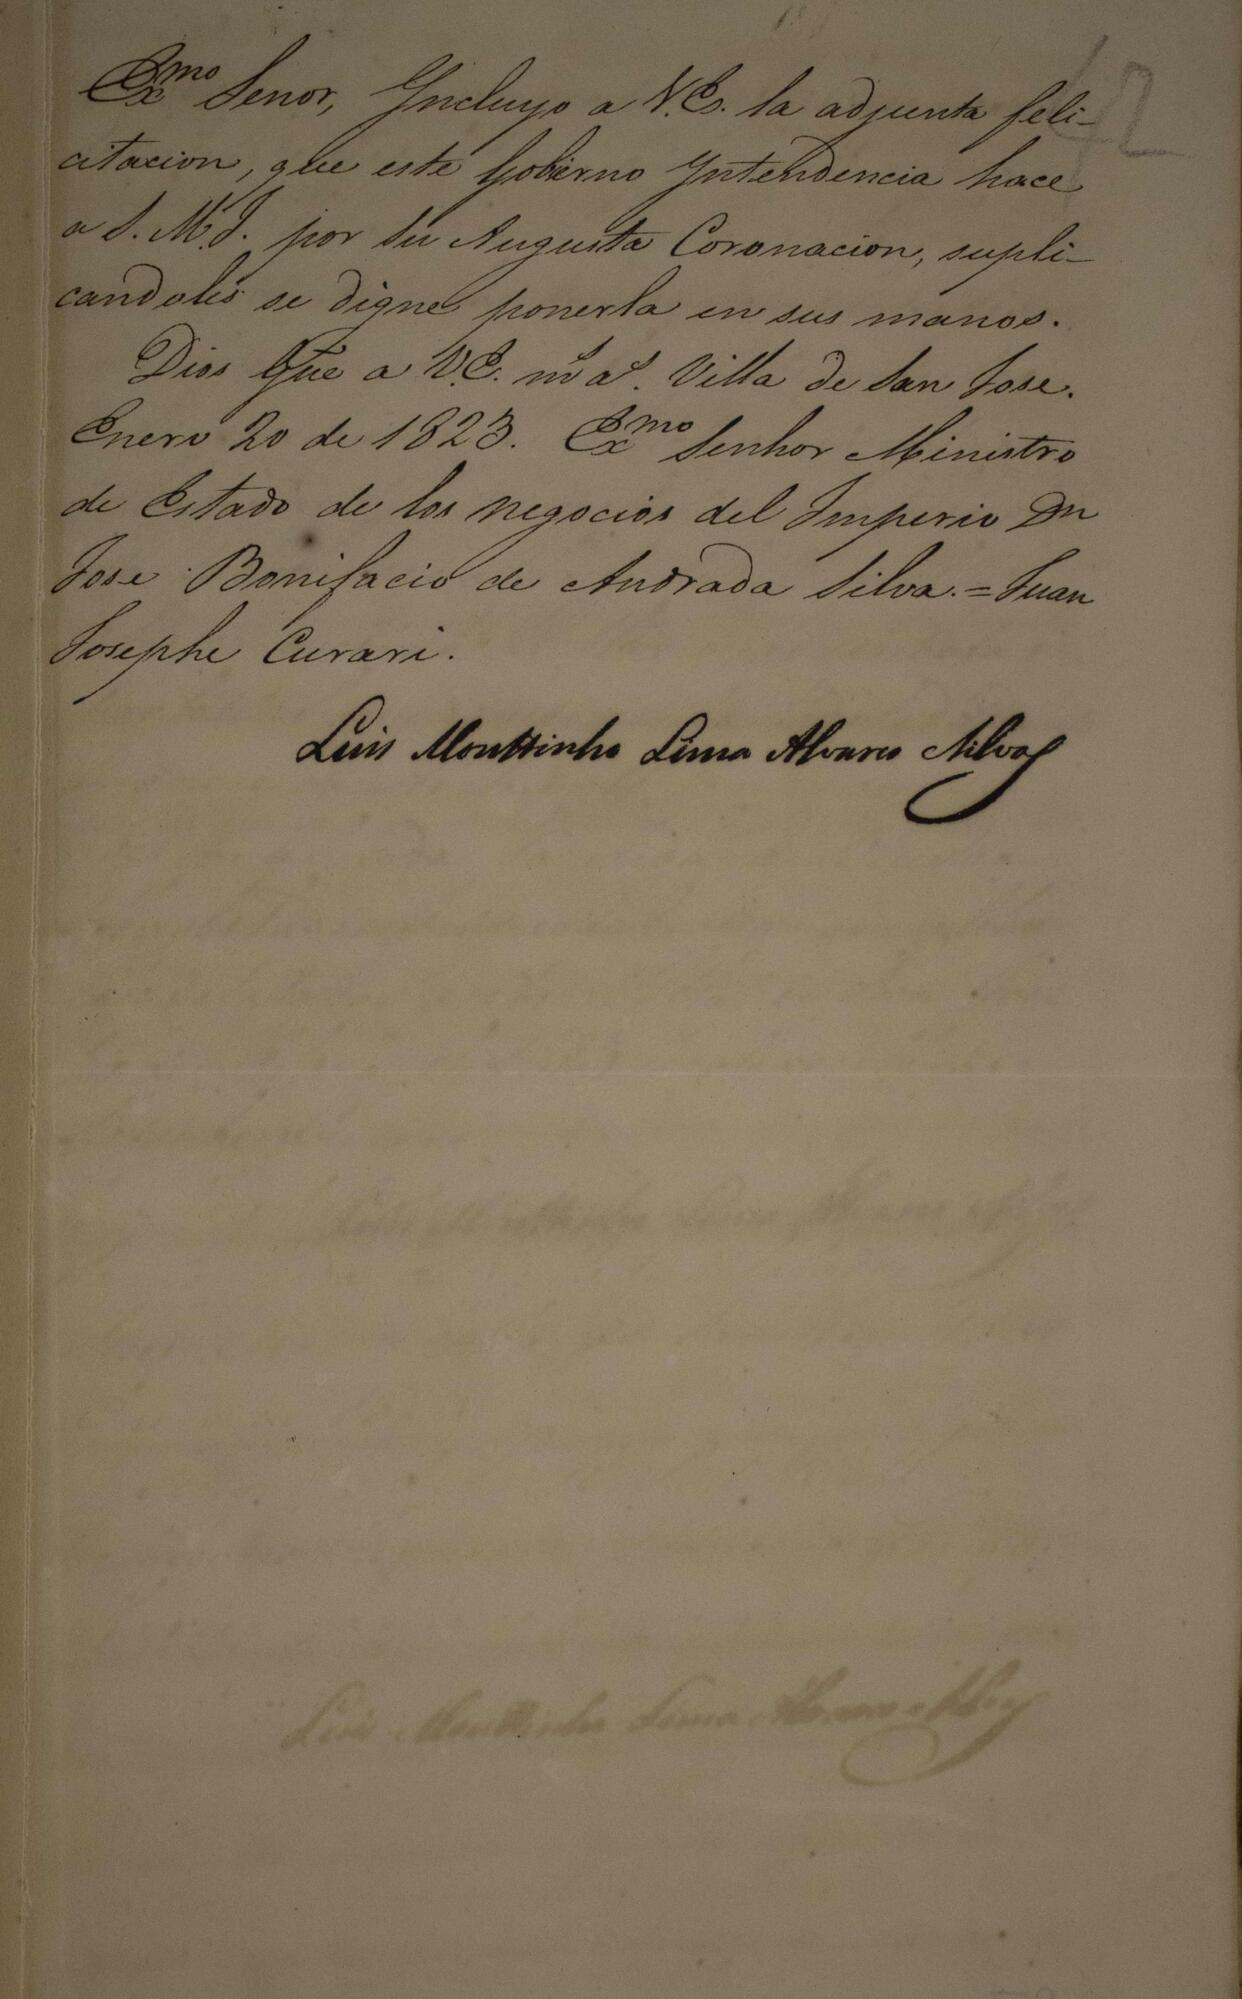 42
Exmo Senor, Yncluyo a V.Es. la adjunta feli-
citacion, que este Gobierno Yntendencia hace
a S. M. J. por su Augusta Coronacion, supli-
candoles se digne ponerla en sus manos.
Dios Gue a V.E. ms as. Villa de San Jose.
Enero 20 de 1823. Exmo Senhor Ministro
de Estado de los negocios del Imperio Dn
Jose Bonifacio de Andrada Silva. = Juan
Josephe Curari.
Luis Mouttinho Lima Alvares Silva